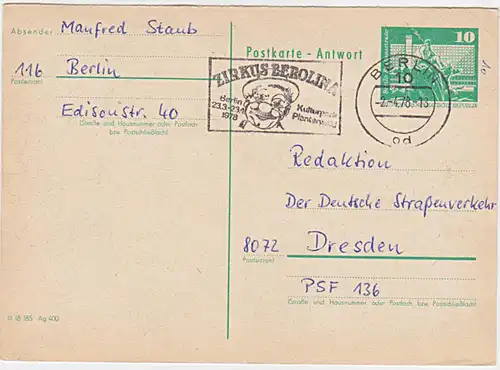 Absender Manfred Staub
116 Berlin
Postleitzahl
Edisonstr. 40
(Straße und Hausnummer oder Postfach
bzw. Postschließfach)
III 18 185 Ag 400
Postkarte - Antwort
ZIRKUS BEROLINA
Berlin
1978
Kulturpark
Plänterwald
BERLIN
10
-2.4.78
od
10
Redaktion
Der Deutsche Straßenverkehr
8072 Dresden
Postleitzahl
PSF 136
(Straße und Hausnummer oder Postfach bzw. Postschließfach)